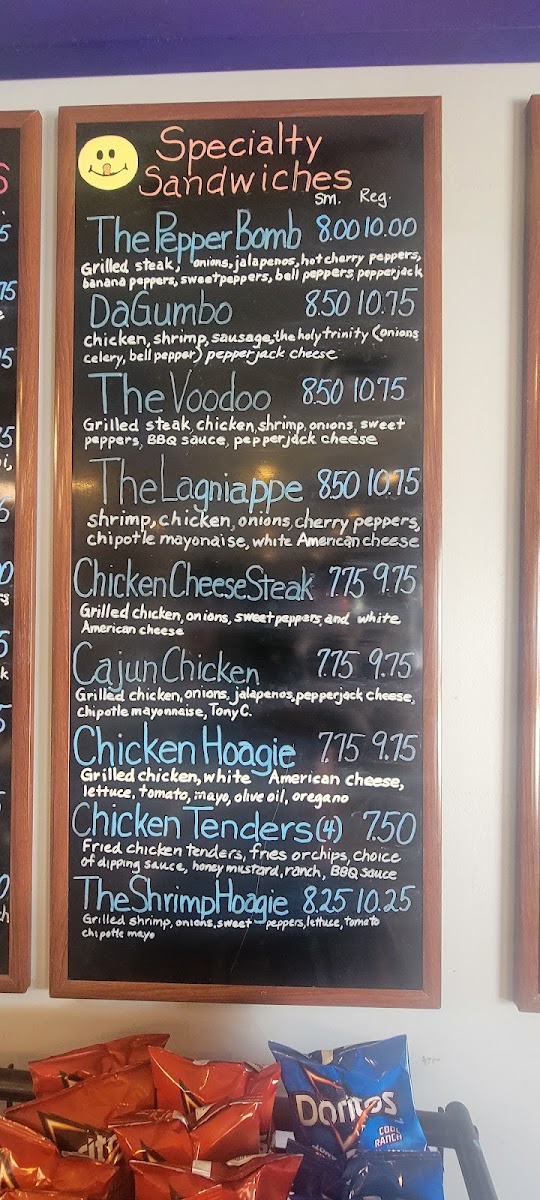 Specialty
Sandwiches
Sm. Reg.
The Pepper Bomb 8.00 10.00
Grilled steak, onions, jalapenos, hot cherry peppers,
banana peppers, sweet peppers, bell peppers, pepperjack
DaGumbo 8.50 10.75
chicken, shrimp, sausage, the holy trinity (onions
celery, bell pepper) pepperjack cheese
The Voodoo 8.50 10.75
Grilled steak, chicken, shrimp, onions, sweet
peppers, BBQ sauce, pepperjack cheese
The Lagniappe 8.50 10.75
shrimp, chicken, onions, cherry peppers,
chipotle mayonaise, white American cheese
Chicken Cheese Steak 7.75 9.75
Grilled chicken, onions, sweet peppers and white
American cheese
Cajun Chicken 7.75 9.75
Grilled chicken, onions, jalapenos, pepperjack cheese,
chipotle mayonnaise, Tony C.
Chicken Hoagie 7.75 9.75
Grilled chicken, white American cheese,
lettuce, tomato, mayo, olive oil, oregano
Chicken Tenders (4) 7.50
Fried chicken tenders, fries or chips, choice
of dipping sauce, honey mustard, ranch, BBQ sauce
The Shrimp Hoagie 8.25 10.25
Grilled shrimp, onions, sweet peppers, lettuce, tomato
chipotle mayo
Doritos
COOL
RANCH